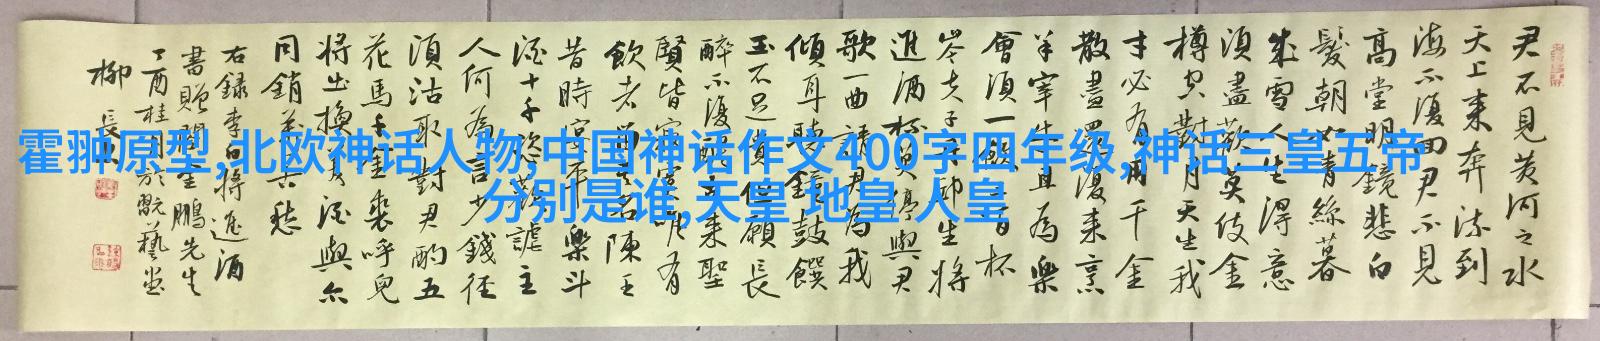 霍翀原型,北欧神话人物,中国神话作文400字四年级,神话三皇五帝
分别是谁,天皇 地皇 人皇
君不見黄河之水
天上来奔流到
海不復回君不見
高堂明鏡悲白
髮朝如青絲暮
成雪人生得意
須盡歡莫使金
樽空對月天生我
才必有用千金
散盡還復来烹
羊宰牛且為樂
會須一飲三百杯
岑夫子丹邱生將
進酒杯莫停與君
歌一曲請君為我
傾耳聽鐘鼓饌
玉不足貴但願長
醉不復醒古来聖
賢皆寂寞唯有
飲者留其名陳王
昔時宴平樂斗
酒十千恣歡謔主
人何為言少錢径
須沽取對君酌五
花馬千金裘呼兒
將出換美酒與尔
同銷萬古愁
右録李白將進酒
書贈生鵬先生
丁酉桂月於翫藝堂
柳長